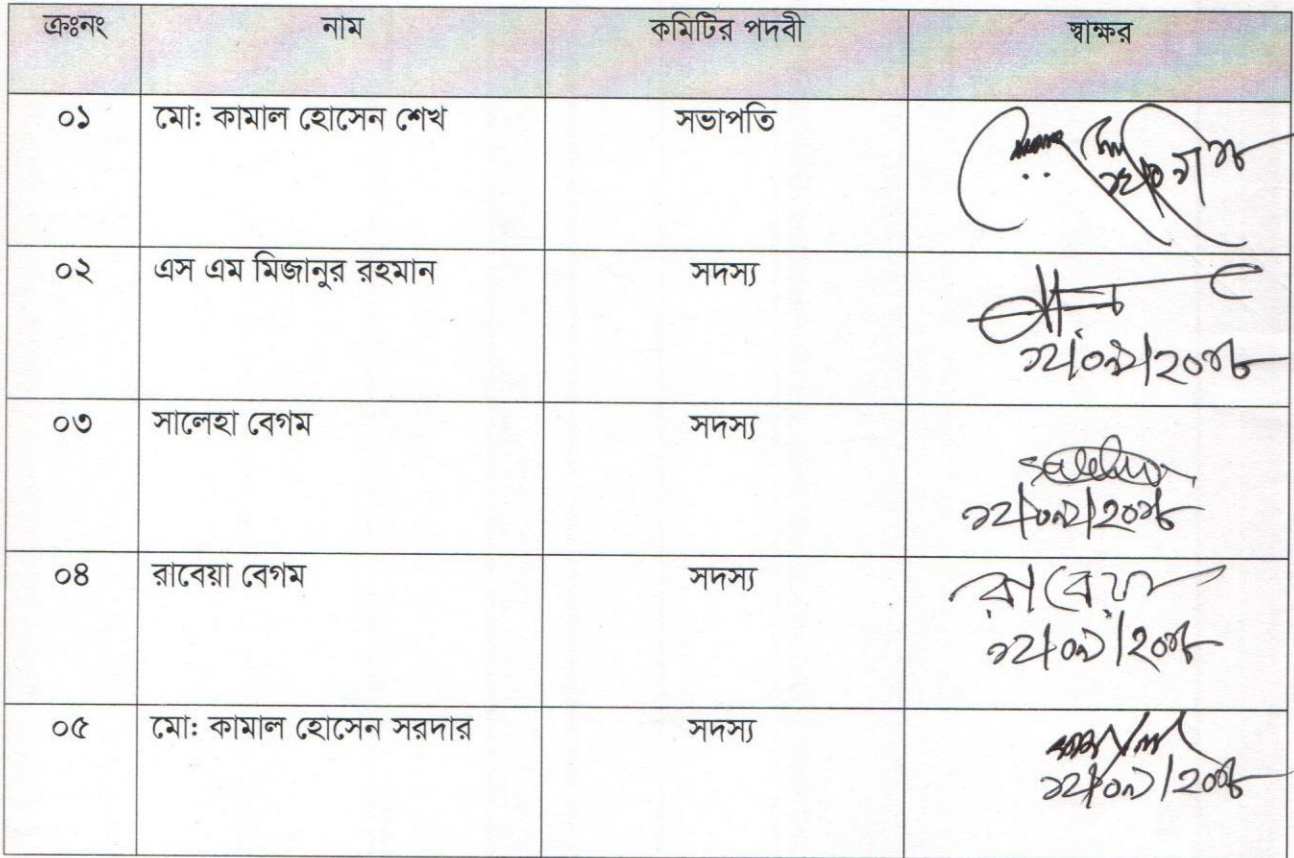 ক্রঃনং নাম কমিটির পদবী স্বাক্ষর
০১ মো: কামাল হোসেন শেখ সভাপতি
০২ এস এম মিজানুর রহমান সদস্য
১২/০৯/২০১৮
০৩ সালেহা বেগম সদস্য
১২/০৯/২০১৮
০৪ রাবেয়া বেগম সদস্য
রাবেয়া
১২/০৯/২০১৮
০৫ মো: কামাল হোসেন সরদার সদস্য
১২/০৯/২০১৮